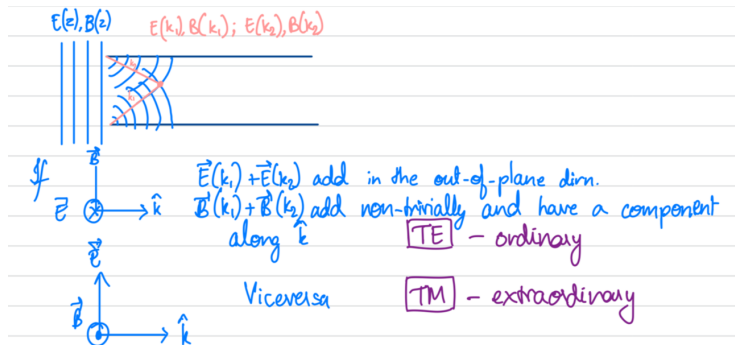 E(z), B(z)
E(k₁), B(k₁) ; E(k₂), B(k₂)
If
B⃗
E⃗
k̂
E⃗(k₁) + E⃗(k₂) add in the out-of-plane dirn.
B⃗(k₁) + B⃗(k₂) add non-trivially and have a component
along k̂
TE - ordinary
E⃗
B⃗
k̂
Viceversa
TM - extraordinary